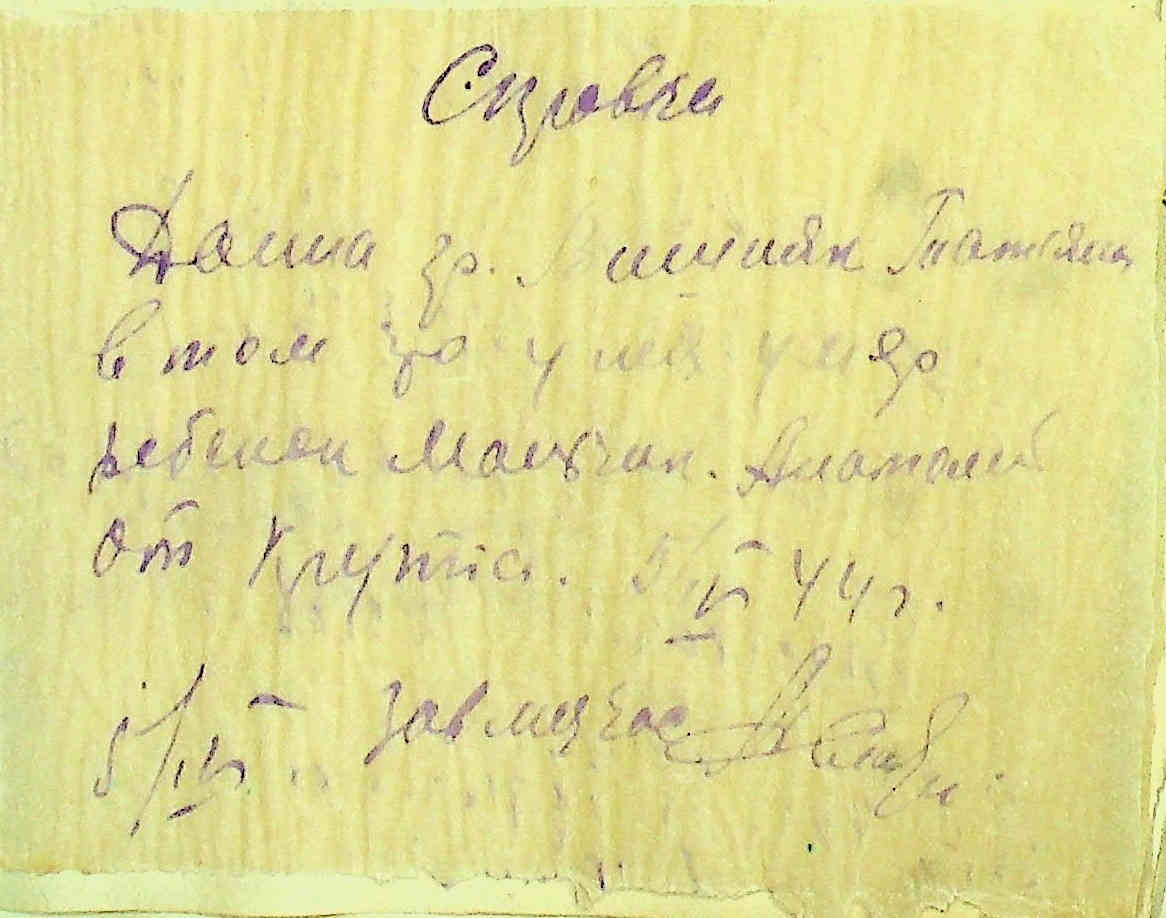 Справка
Дана гр. Вишняк Татьяна
в том что у ней умер
ребенок мальчик. Анатолий
от Крупа. 5/IV 44 г.
5/IV Зав медчас